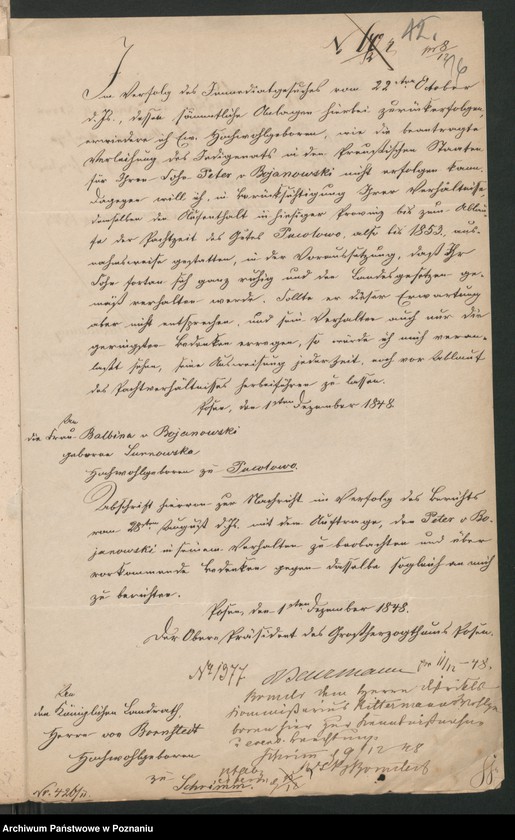 42.
pr 8/12
Im Verfolg des Immediatgesuches vom 22ten October
d. Js., dessen sämmtliche Anlagen hierbei zurückerfolgen,
erwiedere ich Ew. Hochwohlgeboren, wie die beantragte
Verleihung des Indigenats in den Preußischen Staaten
für Ihren Sohn Peter v Bojanowski nicht erfolgen kann.
Dagegen will ich, in Berücksichtigung Ihrer Verhältnisse
demselben den Aufenthalt in hiesiger Provinz bis zum Ablau-
fe der Pachtzeit des Gutes, also bis 1852, aus-
nahmsweise gestatten, in der Voraussetzung, daß Ihr
Sohn fortan sich ganz ruhig und den Landesgesetzen ge-
mäß verhalten werde. Sollte er dieser Erwartung
aber nicht entsprechen, und sein Verhalten auch nur die
geringsten Bedenken erregen, so würde ich mich veran-
laßt sehen, seine Ausweisung jederzeit, auch vor Ablauf
des Pachtverhältnisses herbeiführen zu lassen.
Posen, den 1ten Dezember 1848
An
die Frau Balbina v Bojanowski
geborne
Hochwohlgeboren zu
Abschrift hiervon zur Nachricht im Verfolg des Berichts
vom 28ten August d. Js. mit dem Auftrage, den Peter v Bo-
janowski in seinem Verhalten zu beobachten und über
vorkommende Bedenken gegen dasselbe sogleich an mich
zu berichten.
Posen, den 1ten Dezember 1848.
Der Ober-Präsident des Großherzogthums Posen.
No 1977
Beurmann
pr 11/12 - 48.
An
den Königlichen Landrath
Herrn von Bornstedt
Hochwohlgeboren
zu Schrimm.
dem Herrn Distrikts-
Kommissarius
hier zur Kenntnißnahme
Beachtung.
Schrimm 19/12 48
Archiwum Państwowe w Poznaniu